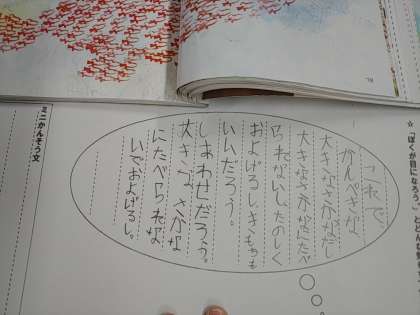 ☆「ぼくが目になろう。」
これで、
かんぺきな
大きなさかなだし
大きなさかなにたべ
られないし、たのしく
およげるし、きもちも
いいだろう。
しあわせだろう。
大きな さかな
にたべられな
いでおよげるし。
ミニかんそう文